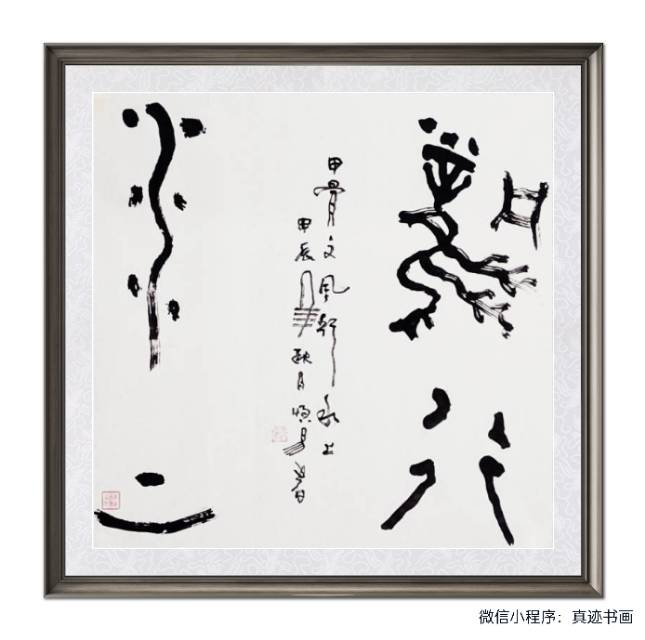 風行
水上
甲骨文风行水上
甲辰年秋月書
微信小程序：真迹书画